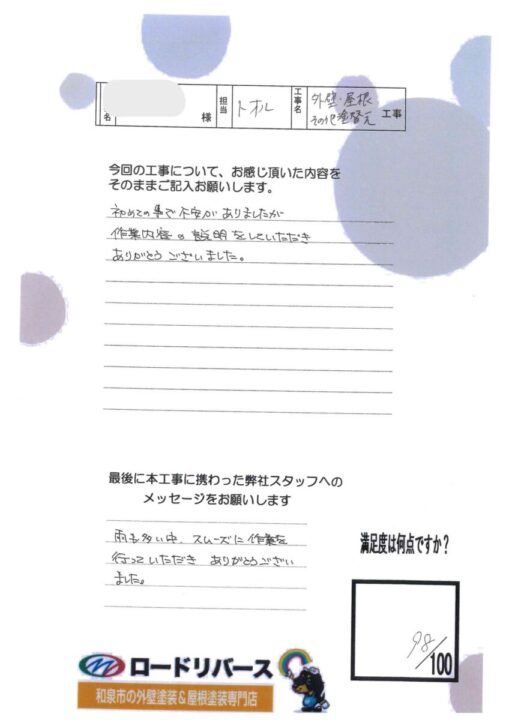 名 様 担当 トオル 工事名 外壁・屋根 その他塗替え 工事
今回の工事について、お感じ頂いた内容を
そのままご記入お願いします。
初めての事で不安がありましたが
作業内容の説明をしていただき
ありがとうございました。
最後に本工事に携わった弊社スタッフへの
メッセージをお願いします
雨も多い中、スムーズに作業を
行っていただき ありがとうござい
ました。
満足度は何点ですか?
98/100
ロードリバース
和泉市の外壁塗装&屋根塗装専門店